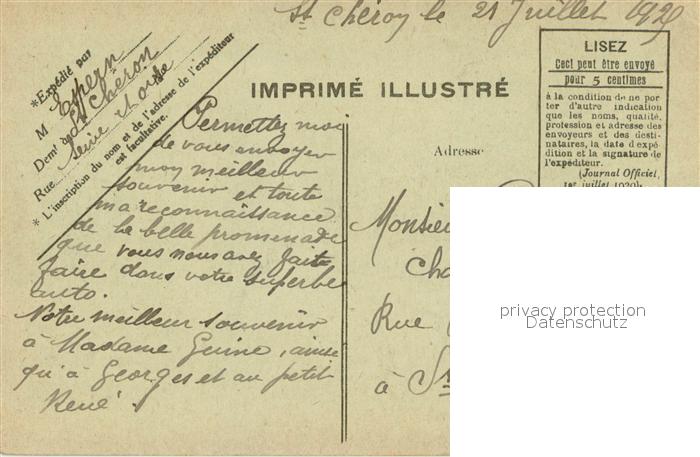 St Chéron le 21 Juillet 192
*Expédié par
M
Demt à St Chéron
Rue Seine et Oise
* L'inscription du nom et de l'adresse de l'expéditeur
est facultative.
IMPRIMÉ ILLUSTRÉ
LISEZ
Ceci peut être envoyé
pour 5 centimes
à la condition de ne por
ter d'autre indication
que les noms, qualité,
profession et adresse des
envoyeurs et des desti-
nataires, la date d'expé-
dition et la signature de
l'expéditeur.
(Journal Officiel,
1er juillet 1920).
Permettez moi
de vous envoyer
mon meilleur
souvenir et toute
ma reconnaissance
de la belle promenade
que vous nous avez faite
faire dans votre superbe
auto.
Notre meilleur souvenir
à Madame Guine, ainsi
qu'à Georges et au petit
René.
Adresse
Monsieur
Rue
à
privacy protection
Datenschutz